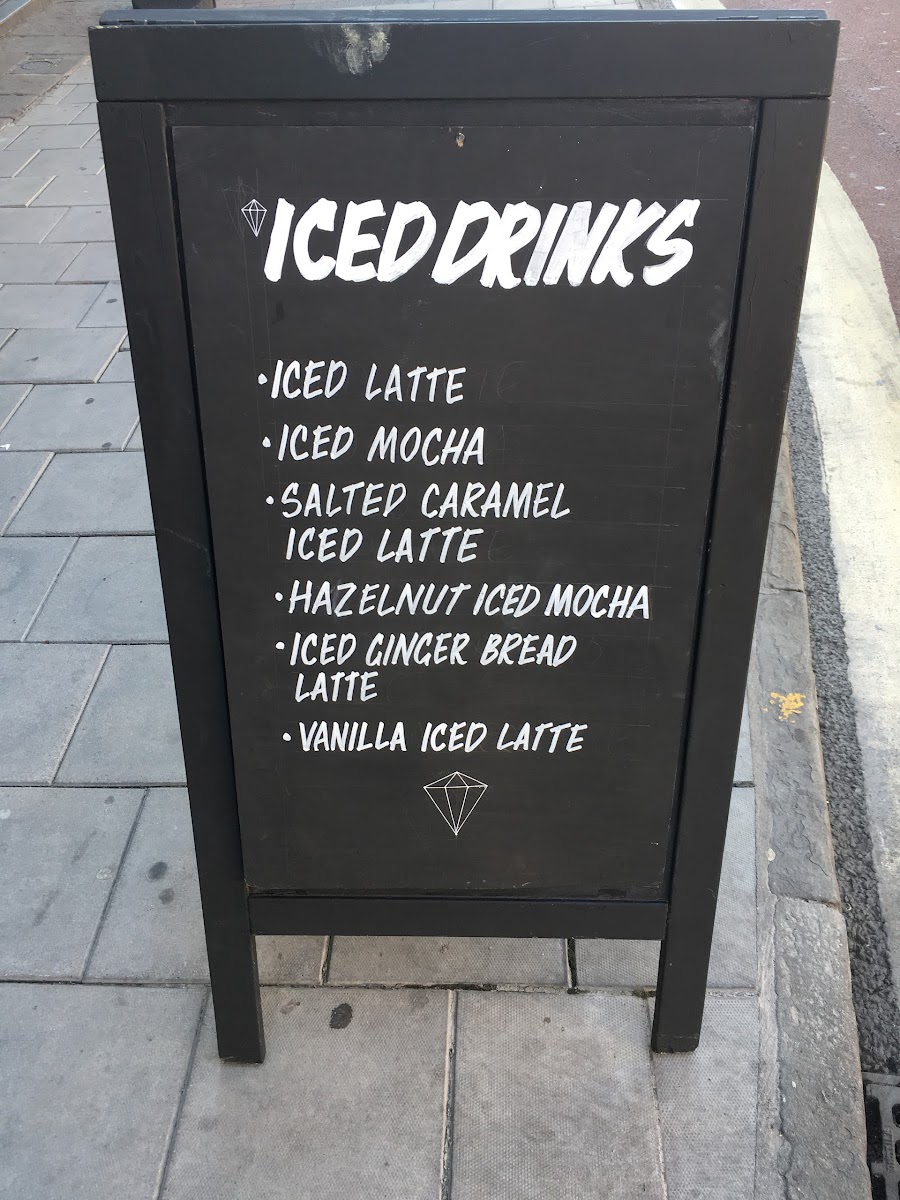 ICED DRINKS
•ICED LATTE
•ICED MOCHA
•SALTED CARAMEL
ICED LATTE
•HAZELNUT ICED MOCHA
•ICED GINGER BREAD
LATTE
•VANILLA ICED LATTE